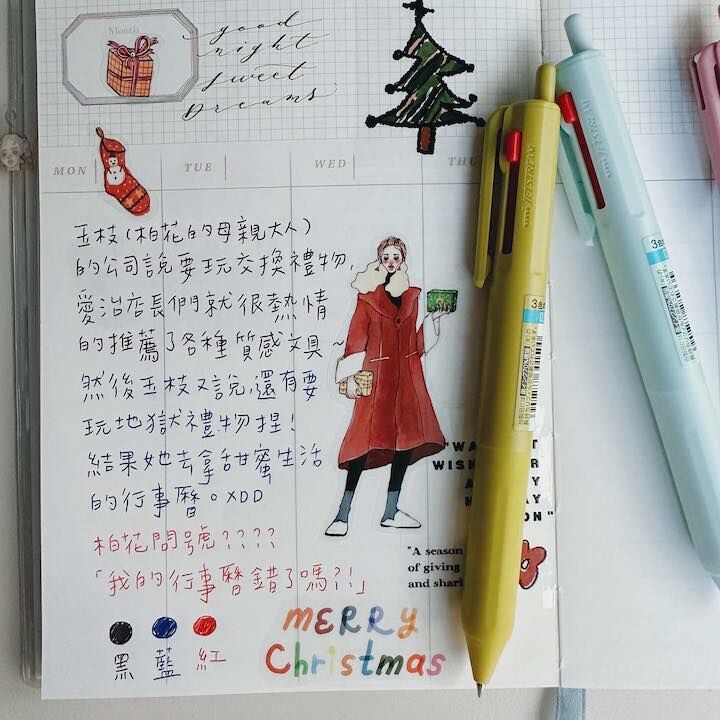 Month
good
night
sweet
Dreams.
MON
TUE
WED
THU
玉枝(柏花的母親大人)
的公司說要玩交換禮物,
愛治店長們就很熱情
的推薦了各種質感文具~
然後玉枝又說,還有要
玩地獄禮物捏!
結果她去拿甜蜜生活
的行事曆。XDD
柏花問號????
「我的行事曆錯了嗎?!」
黑 藍 紅
MERRY
Christmas
"A season
of giving
and shari
uni JETSTREAM